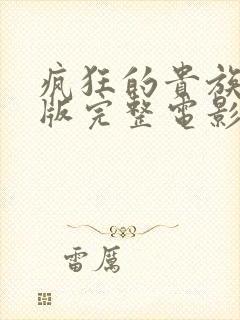 疯狂的贵族
版完整电影
雷厉